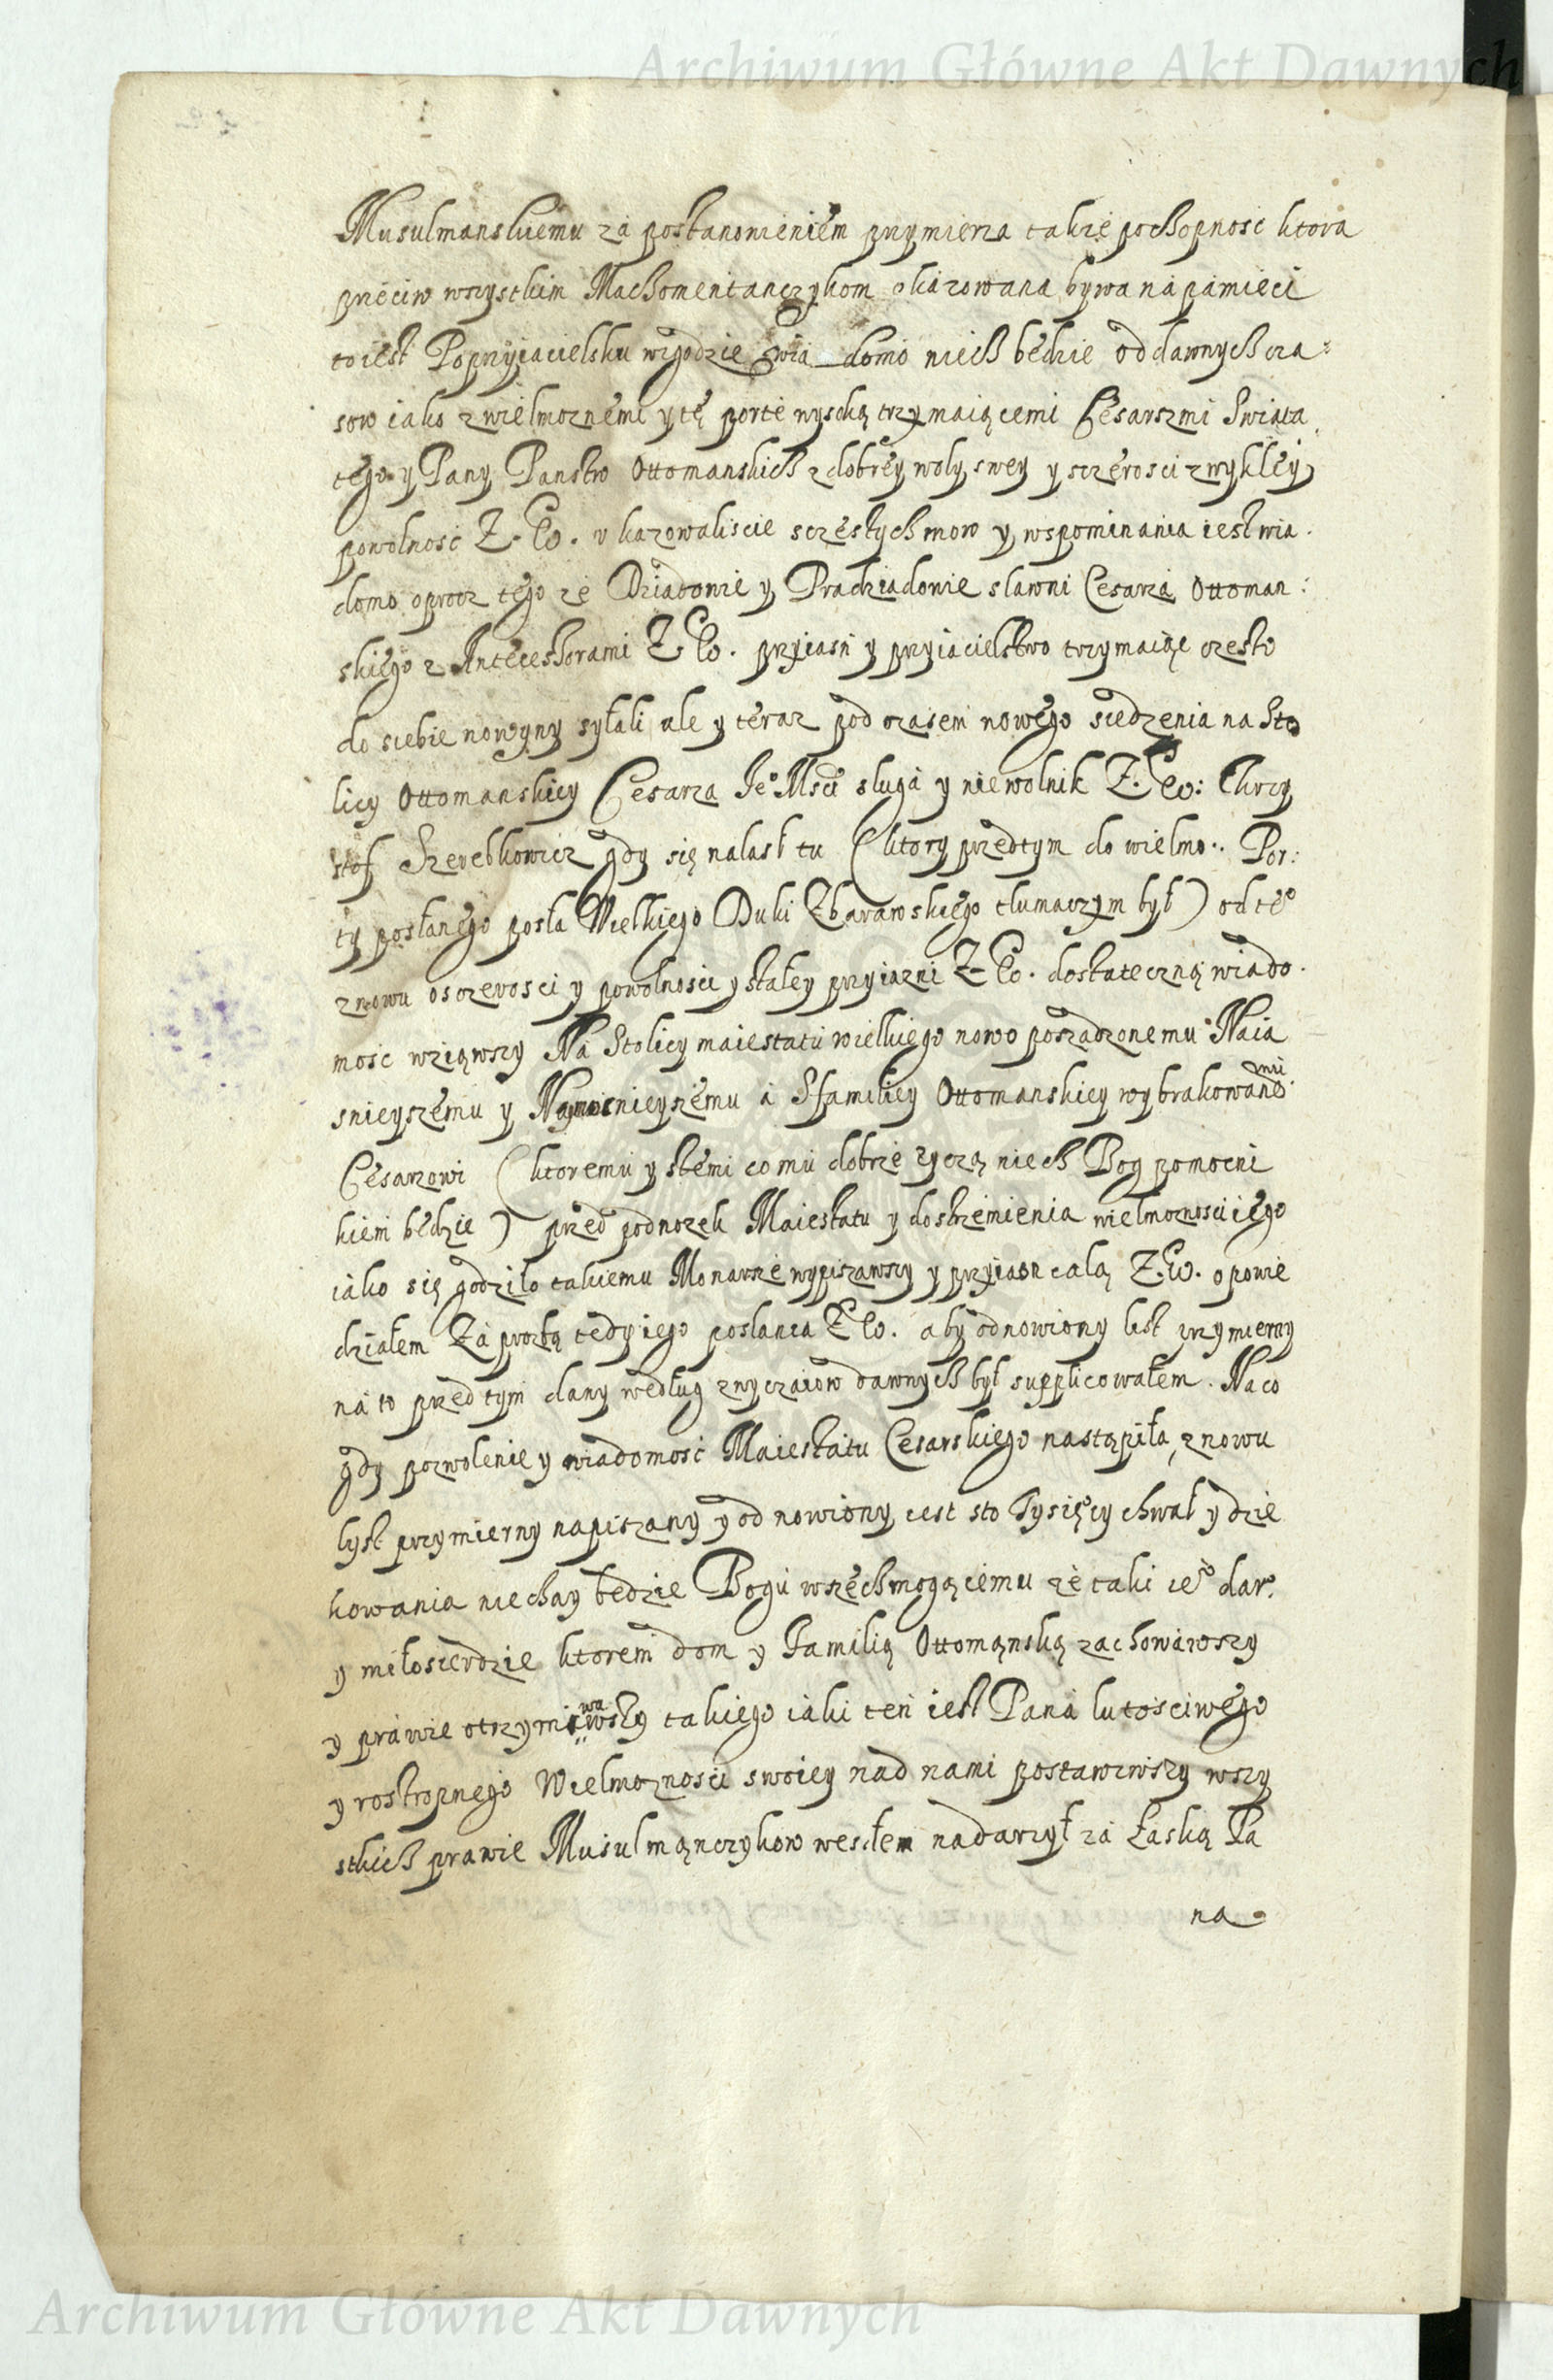 Archiwum Główne Akt Dawnych
Musulmanskiemu za postanowieniem przymierza takze pochopnosc ktora
przeciw wszystkim Machometanczykom okazowana bywa na pamieci
toiest Poprzyiacielsku w zgodzie wia domo niech bedzie od dawnych cza=
sow iako z wielmoznemi y tę porte wysoką trzymaiącemi Cesarzmi Swiata
tego y Pany Panstw Ottomanskich z dobrey woly swey y sczerosci zwykłey
powolnosc Z. W. vkazowaliscie sczestych mow y wspominania iest wia.
domo oprocz tego ze Dziadowie y Pradziadowie sławni Cesarza Ottoman:
skiego z Antecessorami Z. W. przyiasn y przyiacielstwo trzymaiąc czesto
do siebie nowyny syłali ale y teraz pod czasem nowego siedzenia na Sto
licy Ottomanskiey Cesarza Jeo Msci sługa y niewolnik Z. W: Chrzy
stof Szerebkowicz gdy się nalast tu (ktory przedtym do wielmo.. Por:
ty posłanego posła Wielkiego Duki Zbarawskiego tłumaczym był) od teo
znowu o sczerosci y powolnosci y stałey przyiazni Z. W. dostateczną wiado.
mosc wziąwszy Na Stolicy maiestatu wielkiego nowo poszadzonemu Naia
snieyszemu y Namocnieyszemu a S familiey Ottomanskiey wybrakowanemu
Cesarzowi (ktoremu y stemi co mu dobrze zyczą niech Bog pomocni
kiem bedzie) przed podnozek Maiestatu y do strzemienia wielmoznosci iego
iako się godziło takiemu Monarsze wypiszawszy y przyiasn całą Z. W. opowie
działem Za prozbą tedy iego posłanca Z. W. aby odnowiony list przymierny
na to przed tym dany według zwyczaiow dawnych był supplicowałem. Na co
gdy pozwolenie y wiadomosc Maiestatu Cesarskiego nastąpiła, znowu
lyst przymierny napiszany y odnowiony iest sto Tysięcy chwał y dzie
kowania niechay bedzie Bogu wszechmogącemu ze taki ieo dar.
y miłosierdzie ktorem dom y Familią Ottomąnską zachowawszy
y prawie otrzymawszy takiego iaki ten iest Pana lutosciwego
y rostropnego Wielmoznosci swoiey nad nami postawiwszy wszy
stkich prawie Musulmąnczykow weselem nadarzył za Łaską Pa
na.
Archiwum Główne Akt Dawnych